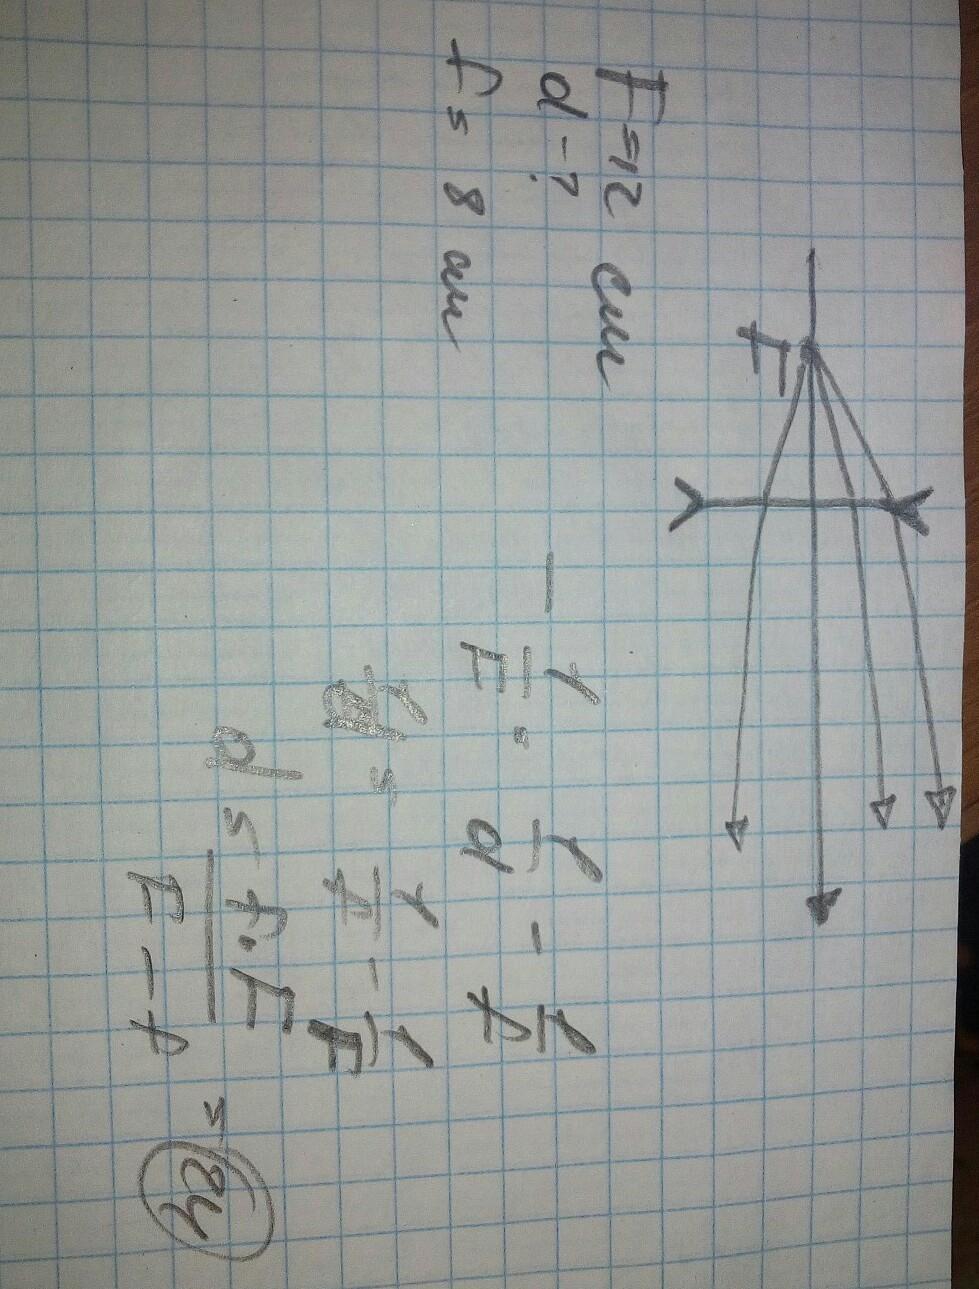 F
F = 12 см
d - ?
f = 8 см
- 1/F = 1/d - 1/f
1/d = 1/f - 1/F
d = f·F / F - f = 24